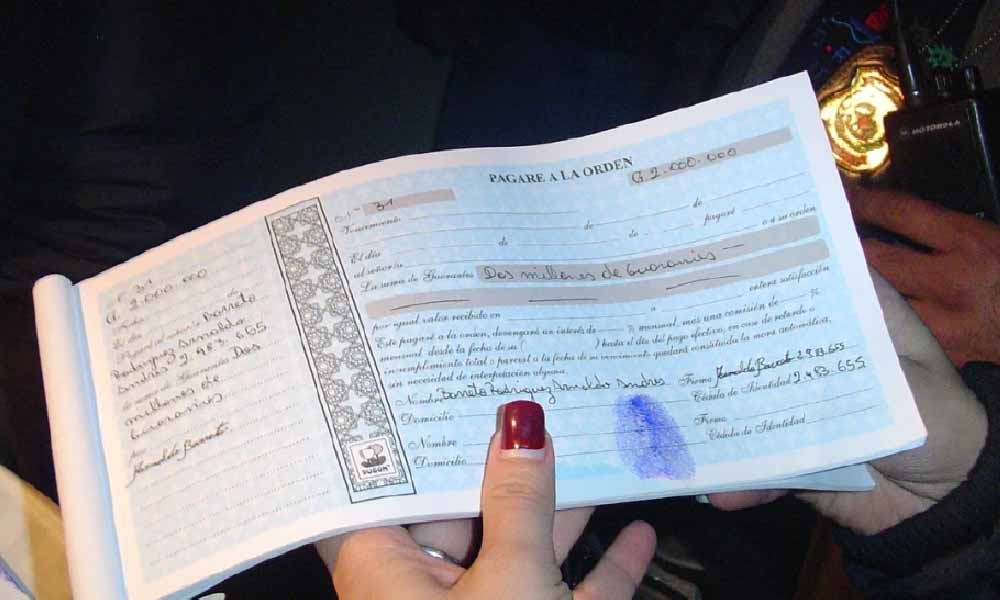 Nº 31
G. 2.000.000
Barreto
Rodriguez Arnaldo
Andres 2.483.655
de Guaraníes Dos
millones de
Guaranies
Arnaldo Barreto
PAGARE A LA ORDEN
Nº 31
G. 2.000.000
Vencimiento de de
El día de de pagaré
al señor/es o a su orden
La suma de Guaraníes Dos millones de Guaranies
por igual valor recibido en a entera satisfacción
Este pagaré a la orden, devengará un interés de % mensual, más una comisión de %
mensual desde la fecha de su ( ) hasta el día del pago efectivo, en caso de retardo o
incumplimiento total o parcial a la fecha de su vencimiento quedará constituida la mora automática,
sin necesidad de interpelación alguna.
Nombre Barreto Rodriguez Arnaldo Andres Firma Arnaldo Barreto 2.483.655
Domicilio Cédula de Identidad 2.483.655
Nombre Firma
Domicilio Cédula de Identidad
MOTOROLA